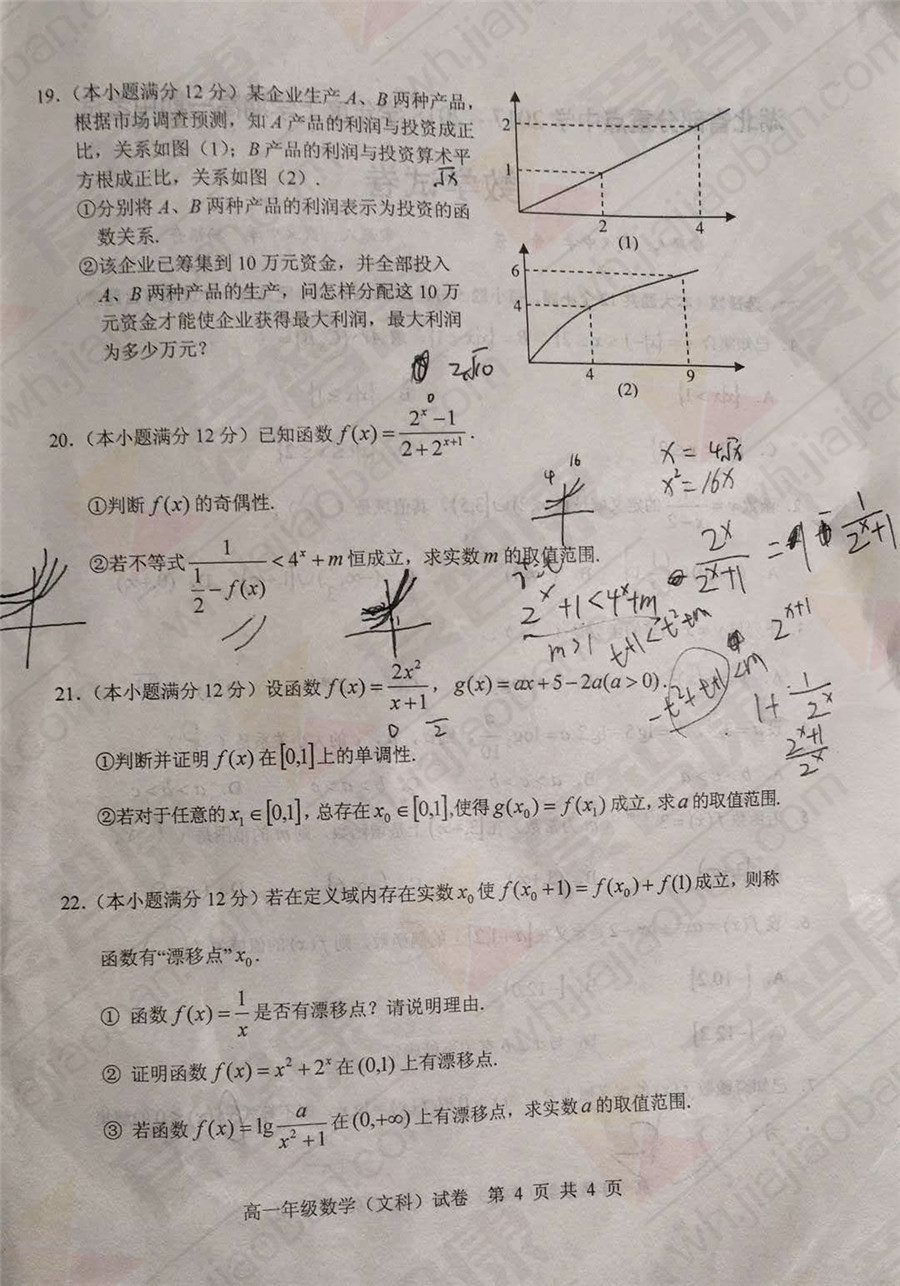 19.（本小题满分 12 分）某企业生产 A、B 两种产品，
根据市场调查预测，知 A 产品的利润与投资成正
比，关系如图（1）；B 产品的利润与投资算术平
方根成正比，关系如图（2）.
√x
①分别将 A、B 两种产品的利润表示为投资的函
数关系.
②该企业已筹集到 10 万元资金，并全部投入
A、B 两种产品的生产，问怎样分配这 10 万
元资金才能使企业获得最大利润，最大利润
为多少万元？
2
1
2
4
(1)
6
4
4
9
(2)
2√10
20.（本小题满分 12 分）已知函数 f(x) = (2^x − 1)/(2 + 2^(x+1)).
①判断 f(x) 的奇偶性.
②若不等式 1/(1/2 − f(x)) < 4^x + m 恒成立，求实数 m 的取值范围.
x = 4√x
x² = 16x
4 16
2^x/(2^x+1) = 1 − 1/(2^x+1)
2^x + 1 < 4^x + m
m > 1
t+1 < t² + m
−t² + t + 1 < m
2^(x+1)
1 + 1/2^x
(2^x+1)/2^x
21.（本小题满分 12 分）设函数 f(x) = 2x²/(x+1)，g(x) = ax + 5 − 2a(a > 0).
0 2
①判断并证明 f(x) 在 [0,1] 上的单调性.
②若对于任意的 x₁ ∈ [0,1]，总存在 x₀ ∈ [0,1],使得 g(x₀) = f(x₁) 成立，求 a 的取值范围.
22.（本小题满分 12 分）若在定义域内存在实数 x₀ 使 f(x₀ + 1) = f(x₀) + f(1) 成立，则称
函数有“漂移点” x₀.
① 函数 f(x) = 1/x 是否有漂移点？请说明理由.
② 证明函数 f(x) = x² + 2^x 在 (0,1) 上有漂移点.
③ 若函数 f(x) = lg a/(x² + 1) 在 (0,+∞) 上有漂移点，求实数 a 的取值范围.
高一年级数学（文科）试卷 第 4 页 共 4 页